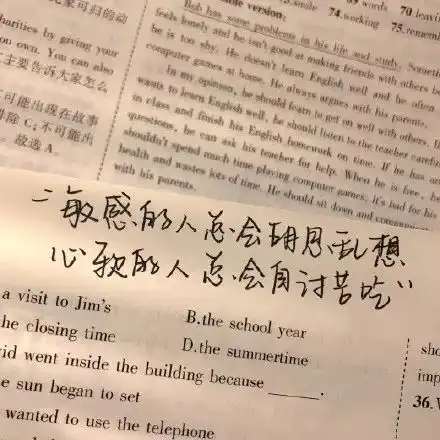 smile
words
70
74.working
75.remem
version:
Bob has some problems in his life and study. Someti
feels lonely and he isn't good at making friends with others be
he is too shy. He doesn't learn English well and he often
computer games at home. He always argues with his parents.
In my opinion, he should learn to get on well with others. If
wants to learn English well, he should listen to the teacher careful
in class and finish his English homework on time. If he has an
questions, he can ask his teacher for help. When he is free, he
shouldn't spend much time playing computer games; it's bad for his
health and wastes lots of time. He should sit down and communicate
with his parents.
harities by giving your
ou own. You can also
主要告诉大家怎么
可能出现在故事
排除 C;不可能出
故选 A
敏感的人总会胡思乱想
心软的人总会自讨苦吃
a visit to Jim's
B.the school year
he closing time
D.the summertime
id went inside the building because ______.
e sun began to set
wanted to use the telephone
sho
imp
36.